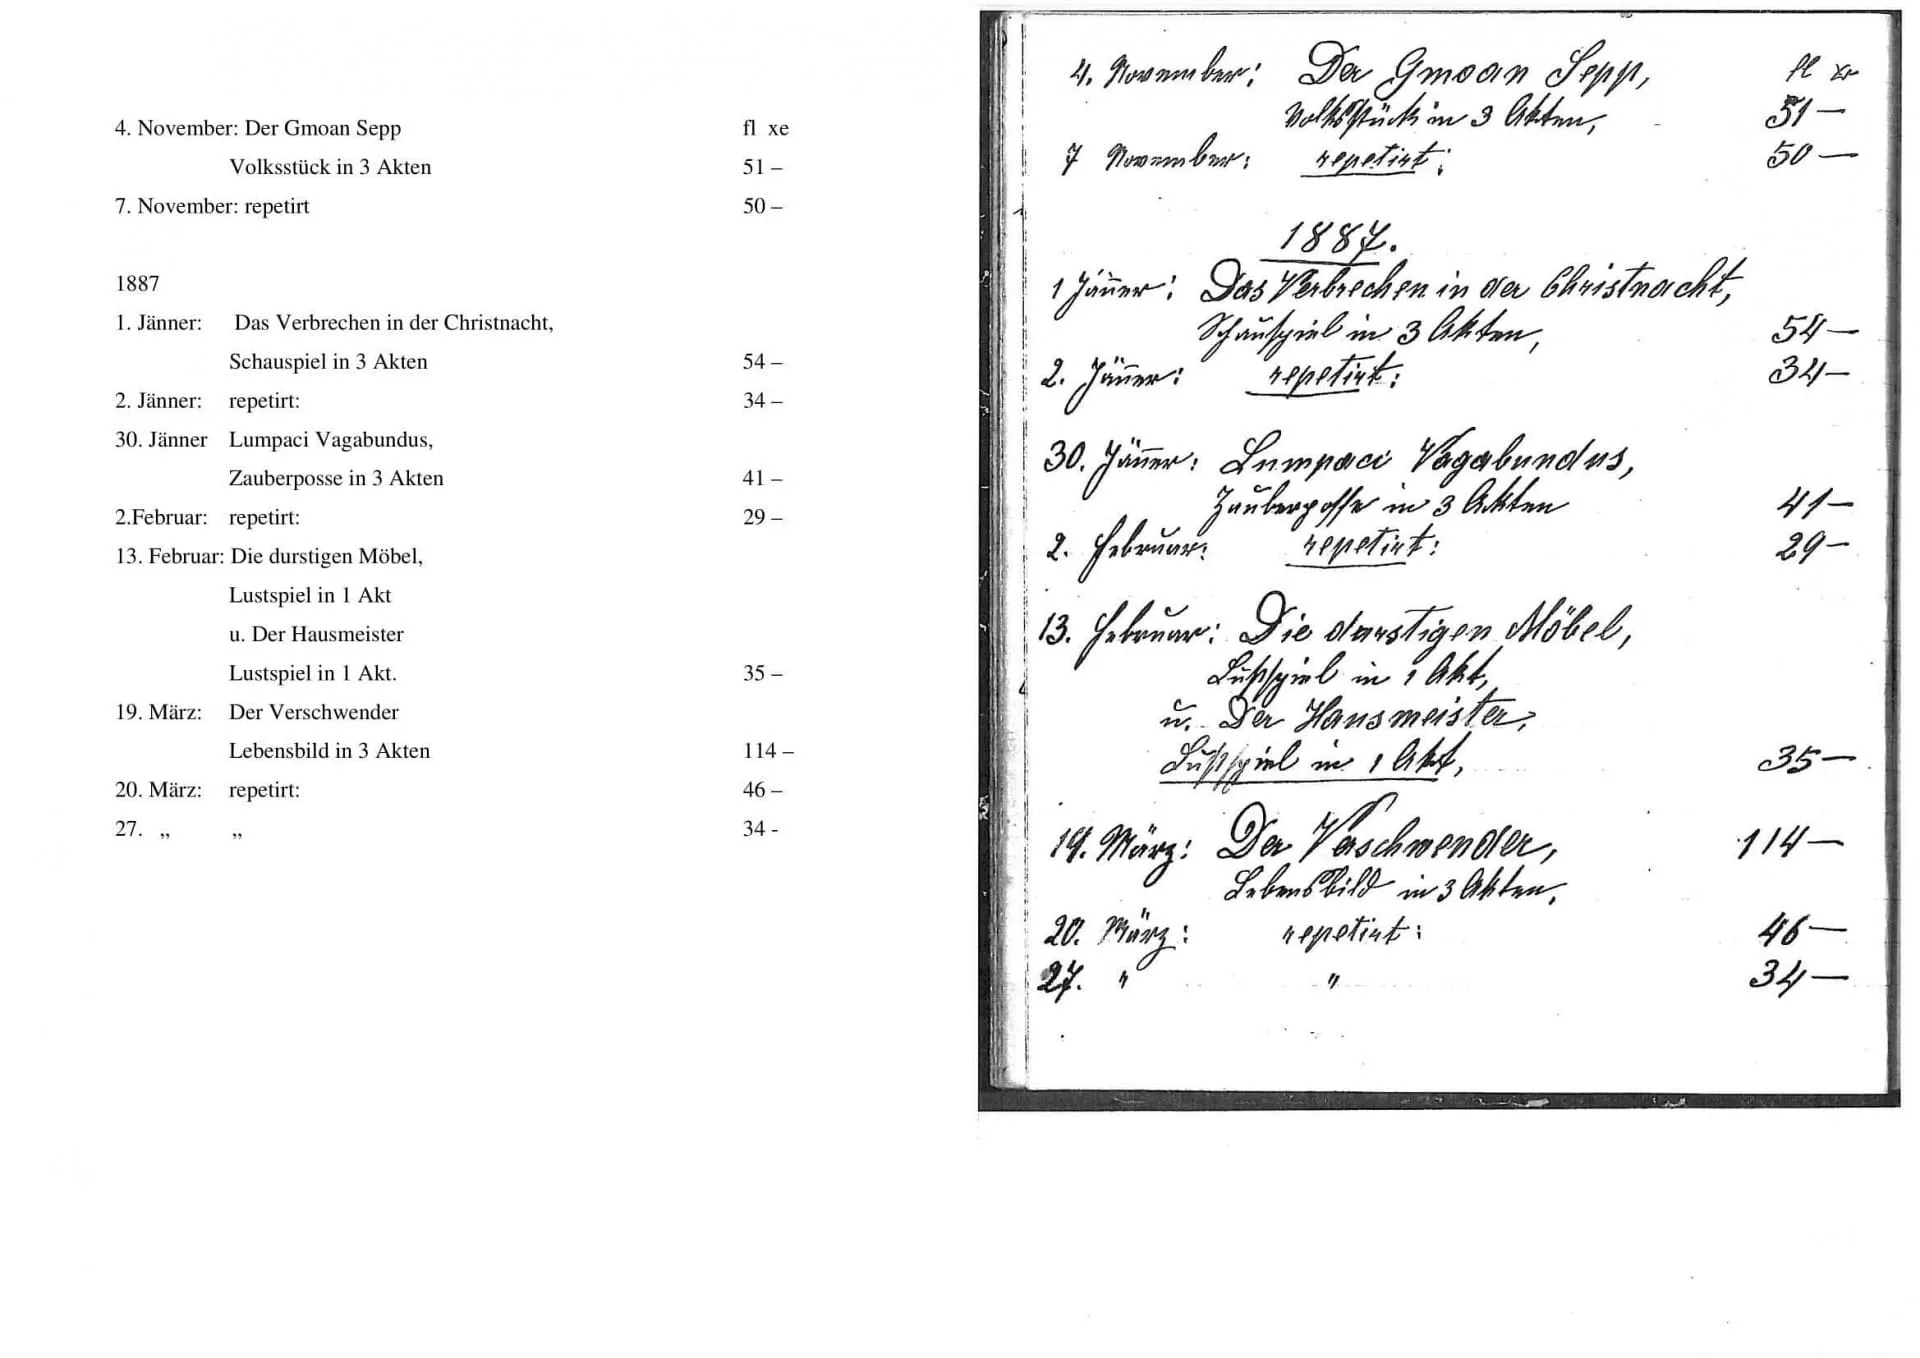 4. November: Der Gmoan Sepp fl xe
Volksstück in 3 Akten 51 –
7. November: repetirt 50 –
1887
1. Jänner: Das Verbrechen in der Christnacht,
Schauspiel in 3 Akten 54 –
2. Jänner: repetirt: 34 –
30. Jänner Lumpaci Vagabundus,
Zauberposse in 3 Akten 41 –
2.Februar: repetirt: 29 –
13. Februar: Die durstigen Möbel,
Lustspiel in 1 Akt
u. Der Hausmeister
Lustspiel in 1 Akt. 35 –
19. März: Der Verschwender
Lebensbild in 3 Akten 114 –
20. März: repetirt: 46 –
27. „ „ 34 -
4. November: Der Gmoan Sepp, fl xr
Volksstück in 3 Akten, 51 —
7 November: repetirt: 50 —
1887.
1 Jänner: Das Verbrechen in der Christnacht,
Schauspiel in 3 Akten, 54 —
2. Jänner: repetirt: 34 —
30. Jänner: Lumpaci Vagabundus,
Zauberposse in 3 Akten 41 —
2. Februar: repetirt: 29 —
13. Februar: Die durstigen Möbel,
Lustspiel in 1 Akt,
u. Der Hausmeister,
Lustspiel in 1 Akt, 35 —
19. März: Der Verschwender, 114 —
Lebensbild in 3 Akten,
20. März: repetirt: 46 —
27. " " 34 —